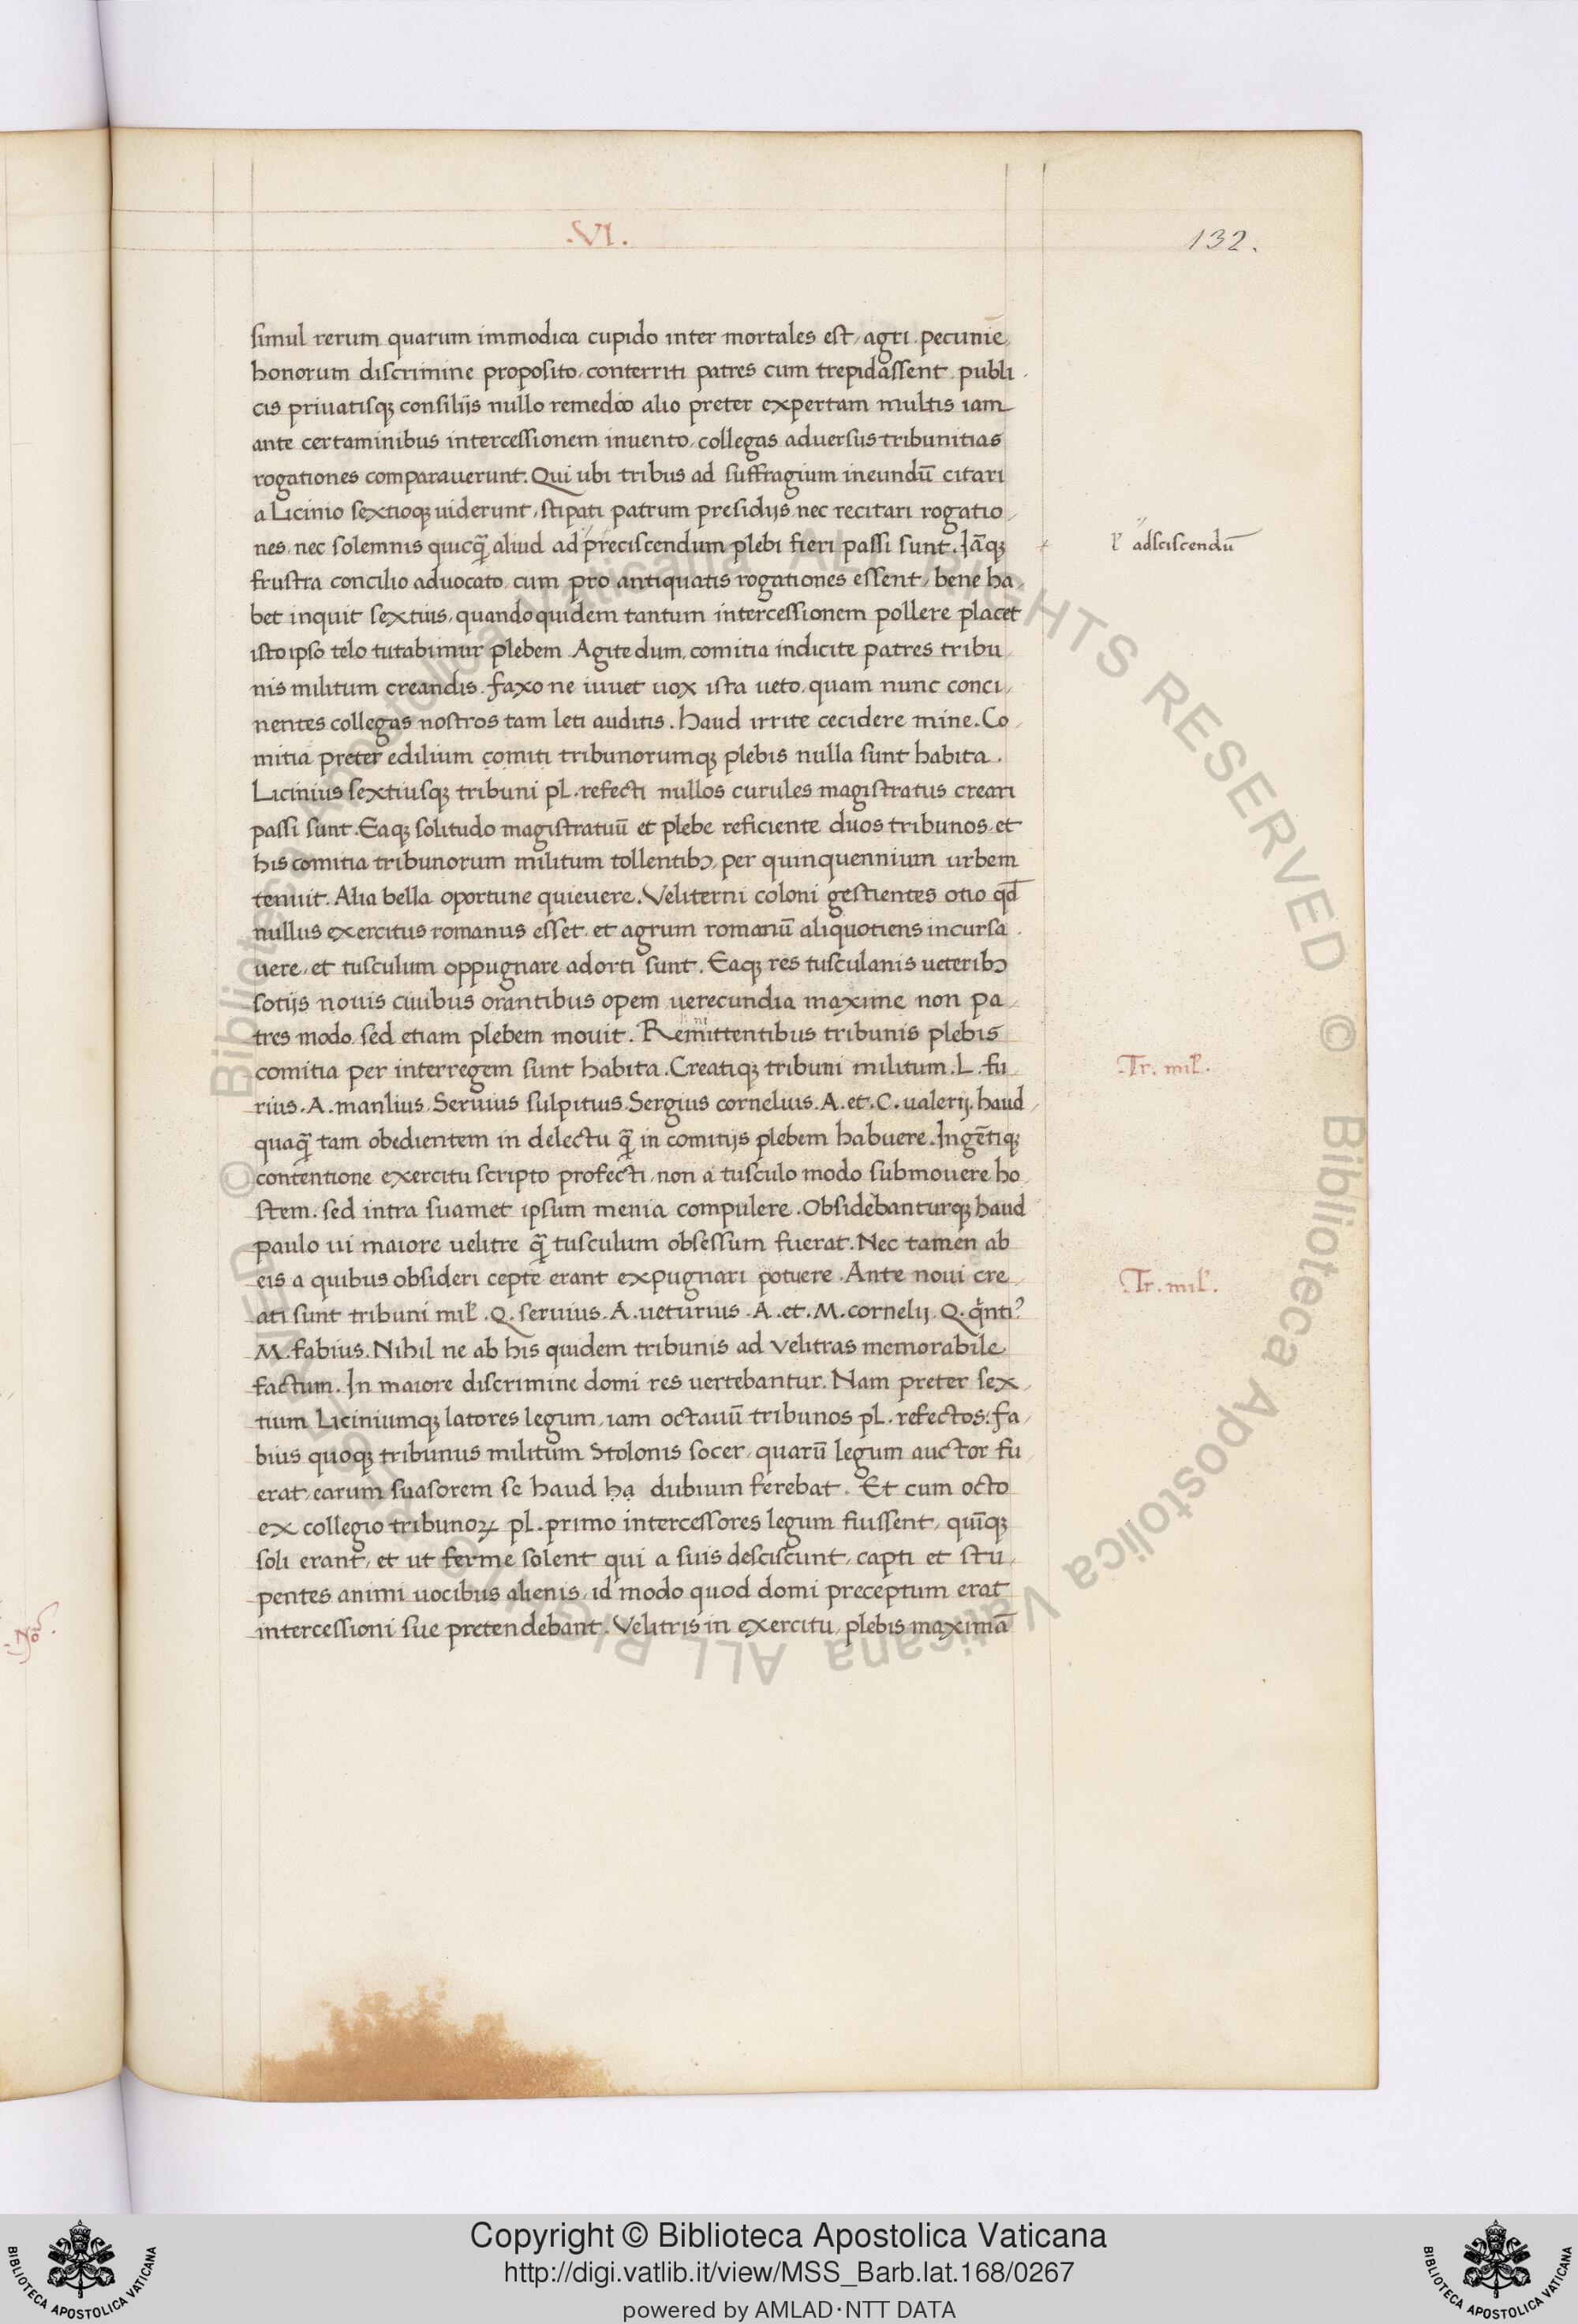 .VI.
132.
simul rerum quarum immodica cupido inter mortales est, agri. pecunie,
honorum discrimine proposito, conterriti patres cum trepidassent publi
cis priuatisqꝫ consilijs nullo remedio alio preter expertam multis iam
ante certaminibus intercessionem inuento, collegas aduersus tribunitias
rogationes comparauerunt. Qui ubi tribus ad suffragium ineundū citari
a Licinio sextioqꝫ uiderunt, stipati patrum presidijs nec recitari rogatio
nes, nec solemnis quicq̄ aliud ad preciscendum plebi fieri passi sunt. Iāqꝫ
ł adsciscendū
frustra concilio aduocato, cum pro antiquatis rogationes essent, bene ha
bet inquit sextius, quandoquidem tantum intercessionem pollere placet
isto ipso telo tutabimur plebem. Agite dum, comitia indicite patres tribu
nis militum creandis. faxo ne iuuet uox ista ueto, quam nunc conci
nentes collegas nostros tam leti auditis. haud irrite cecidere mine. Co
mitia preter edilium comiti tribunorumqꝫ plebis nulla sunt habita.
Licinius sextiusqꝫ tribuni pl. refecti nullos curules magistratus creari
passi sunt. Eaqꝫ solitudo magistratuū et plebe reficiente duos tribunos, et
his comitia tribunorum militum tollentibꝰ, per quinquennium urbem
tenuit. Alia bella oportune quieuere. Veliterni coloni gestientes otio qđ
nullus exercitus romanus esset, et agrum romanū aliquotiens incursa
uere, et tusculum oppugnare adorti sunt. Eaqꝫ res tusculanis ueteribꝰ
sotijs nouis ciuibus orantibus opem uerecundia maxime non pa
tres modo, sed etiam plebem mouit. Remittentibus tribunis plebis
comitia per interregem sunt habita. Creatiqꝫ tribuni militum. L. fu
Tr. mil.
rius. A. manlius. Seruius sulpitius. Sergius cornelius. A. et. C. ualerij. haud
quaq̄ tam obedientem in delectu q̄ in comitijs plebem habuere. Ingētiqꝫ
contentione exercitu scripto profecti, non a tusculo modo submouere ho
stem. sed intra suamet ipsum menia compulere. Obsidebanturqꝫ haud
paulo ui maiore uelitre q̄ tusculum obsessum fuerat. Nec tamen ab
eis a quibus obsideri cepte erant expugnari potuere. Ante noui cre
Tr. mil.
ati sunt tribuni mil. Q. seruius. A. ueturius. A. et. M. cornelij. Q. q̇ntiꝰ
M. fabius. Nihil ne ab his quidem tribunis ad velitras memorabile
factum. In maiore discrimine domi res uertebantur. Nam preter sex
tium Liciniumqꝫ latores legum, iam octauū tribunos pl. refectos: fa
bius quoqꝫ tribunus militum Stolonis socer, quarū legum auctor fu
erat, earum suasorem se haud ha dubium ferebat. Et cum octo
ex collegio tribunoꝝ pl. primo intercessores legum fuissent, quīqꝫ
soli erant, et ut ferme solent qui a suis desciscunt, capti et stu
pentes animi uocibus alienis, id modo quod domi preceptum erat
intercessioni sue pretendebant. Velitris in exercitu, plebis maximā
Copyright © Biblioteca Apostolica Vaticana
http://digi.vatlib.it/view/MSS_Barb.lat.168/0267
powered by AMLAD·NTT DATA